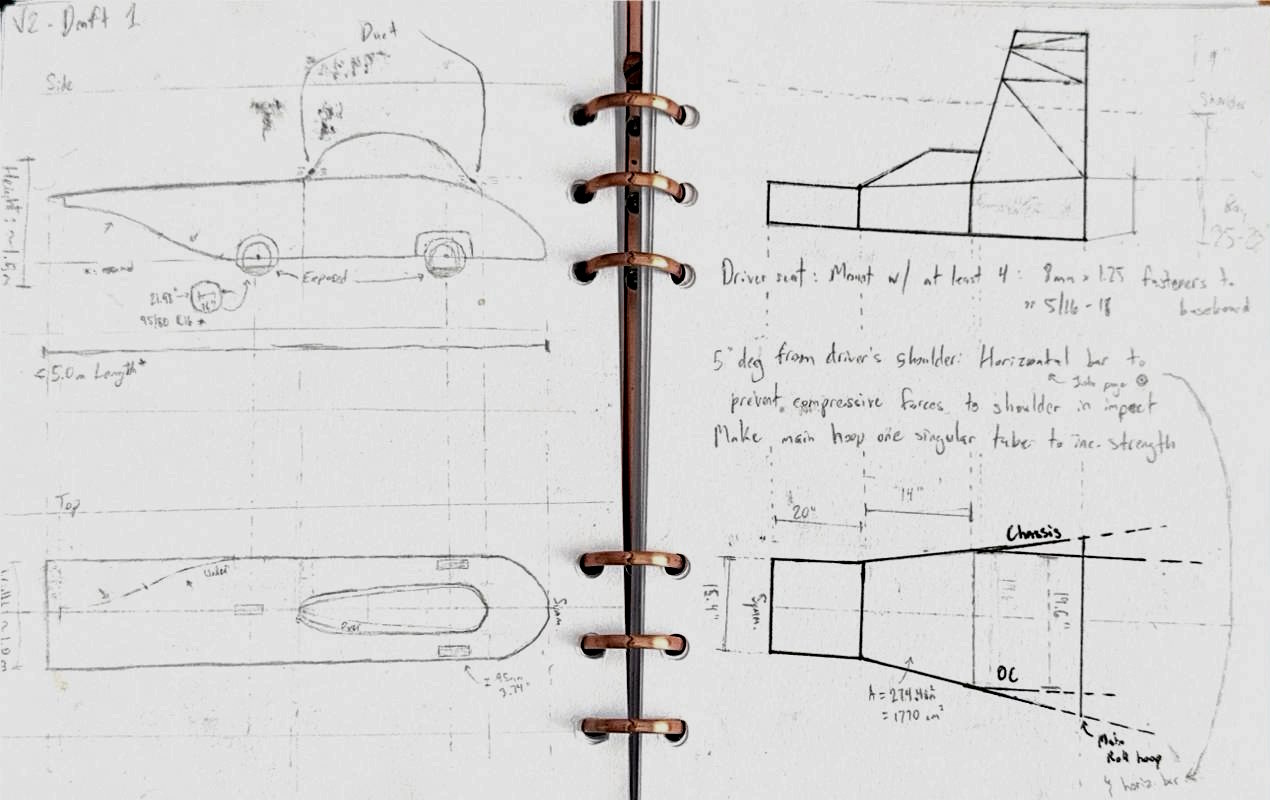 V2 - Draft 1
Duct
Side
Height: ~1.5m
Exposed
16"
95/80 R16 *
< 5.0m Length*
Top
Under
Over
Symm
= 95mm
3.74"
9"
Shoulder
25-28"
Driver seat: Mount w/ at least 4: 8mm x 1.25 fasteners to
or 5/16-18 baseboard
5° deg from driver's shoulder: Horizontal bar to
page
prevent compressive forces to shoulder in impact
Make main hoop one singular tube to inc. strength
20"
14"
Chassis
15.4"
Symm.
19.6"
OC
= 1770 cm²
Main
Roll hoop
& horiz. bar